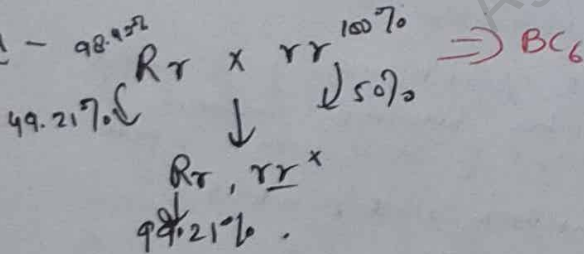 98.42%
Rr x rr 100% ⇒ BC6
49.21% ↓ 50%
Rr, rr x
99.21%.